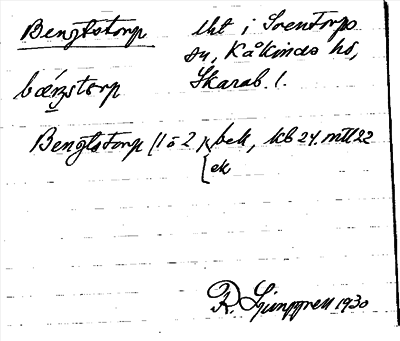 Bengtstorp lht i Sventorps
sn, Kåkinds hd,
bæŋstorp Skarab. l.
Bengtstorp (1 o 2) bek, kb 24. mtl 22
ek
R. Ljunggren 1930